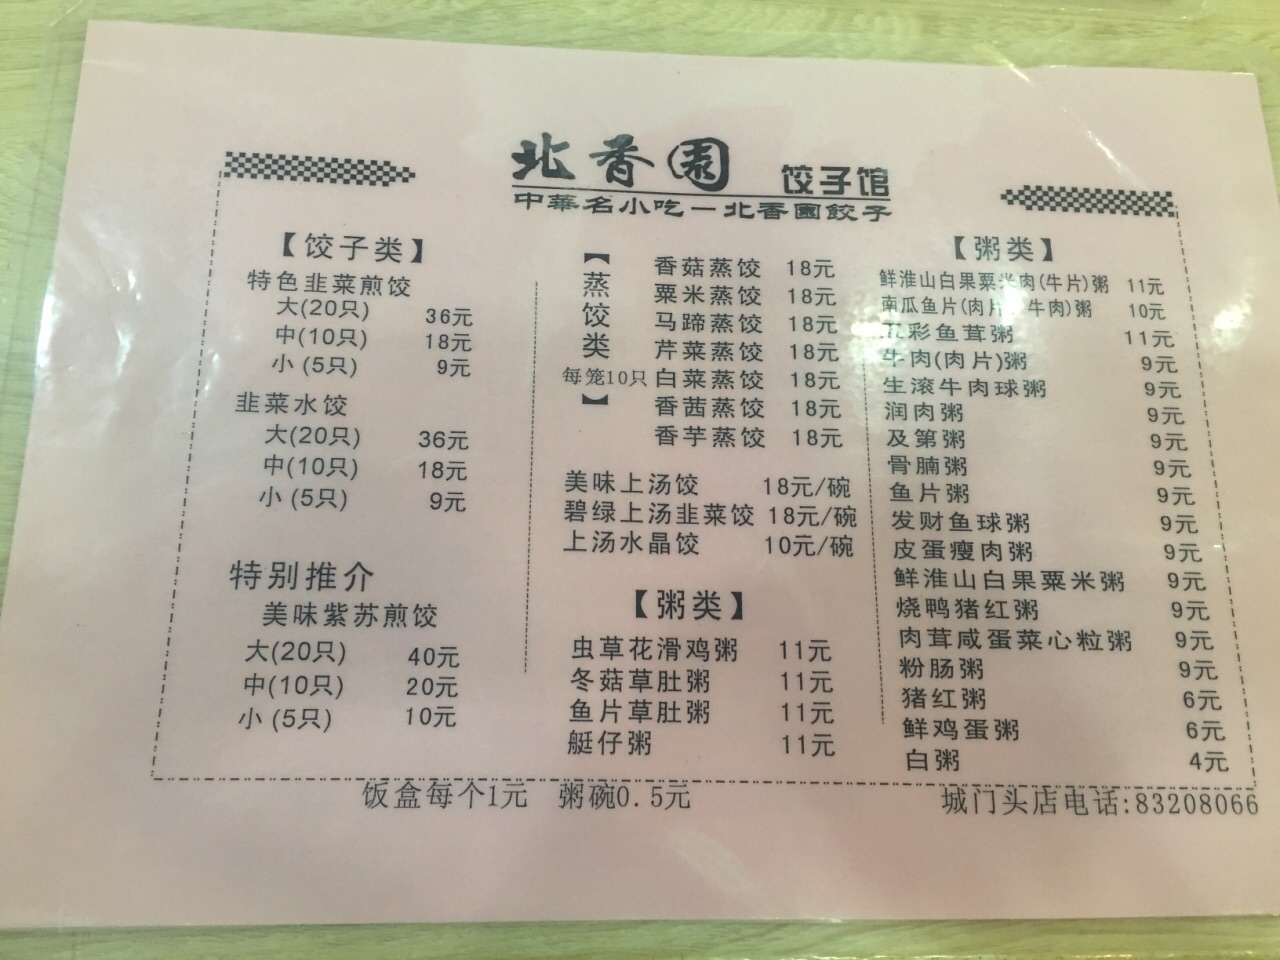 北香園 饺子馆
中華名小吃－北香園餃子
【饺子类】
特色韭菜煎饺
大(20只) 36元
中(10只) 18元
小(5只) 9元
韭菜水饺
大(20只) 36元
中(10只) 18元
小(5只) 9元
特别推介
美味紫苏煎饺
大(20只) 40元
中(10只) 20元
小(5只) 10元
【蒸饺类 每笼10只】
香菇蒸饺 18元
粟米蒸饺 18元
马蹄蒸饺 18元
芹菜蒸饺 18元
白菜蒸饺 18元
香茜蒸饺 18元
香芋蒸饺 18元
美味上汤饺 18元/碗
碧绿上汤韭菜饺 18元/碗
上汤水晶饺 10元/碗
【粥类】
虫草花滑鸡粥 11元
冬菇草肚粥 11元
鱼片草肚粥 11元
艇仔粥 11元
【粥类】
鲜淮山白果粟米肉(牛片)粥 11元
南瓜鱼片(肉片 牛肉)粥 10元
五彩鱼茸粥 11元
牛肉(肉片)粥 9元
生滚牛肉球粥 9元
润肉粥 9元
及第粥 9元
骨腩粥 9元
鱼片粥 9元
发财鱼球粥 9元
皮蛋瘦肉粥 9元
鲜淮山白果粟米粥 9元
烧鸭猪红粥 9元
肉茸咸蛋菜心粒粥 9元
粉肠粥 9元
猪红粥 6元
鲜鸡蛋粥 6元
白粥 4元
饭盒每个1元 粥碗0.5元
城门头店电话:83208066